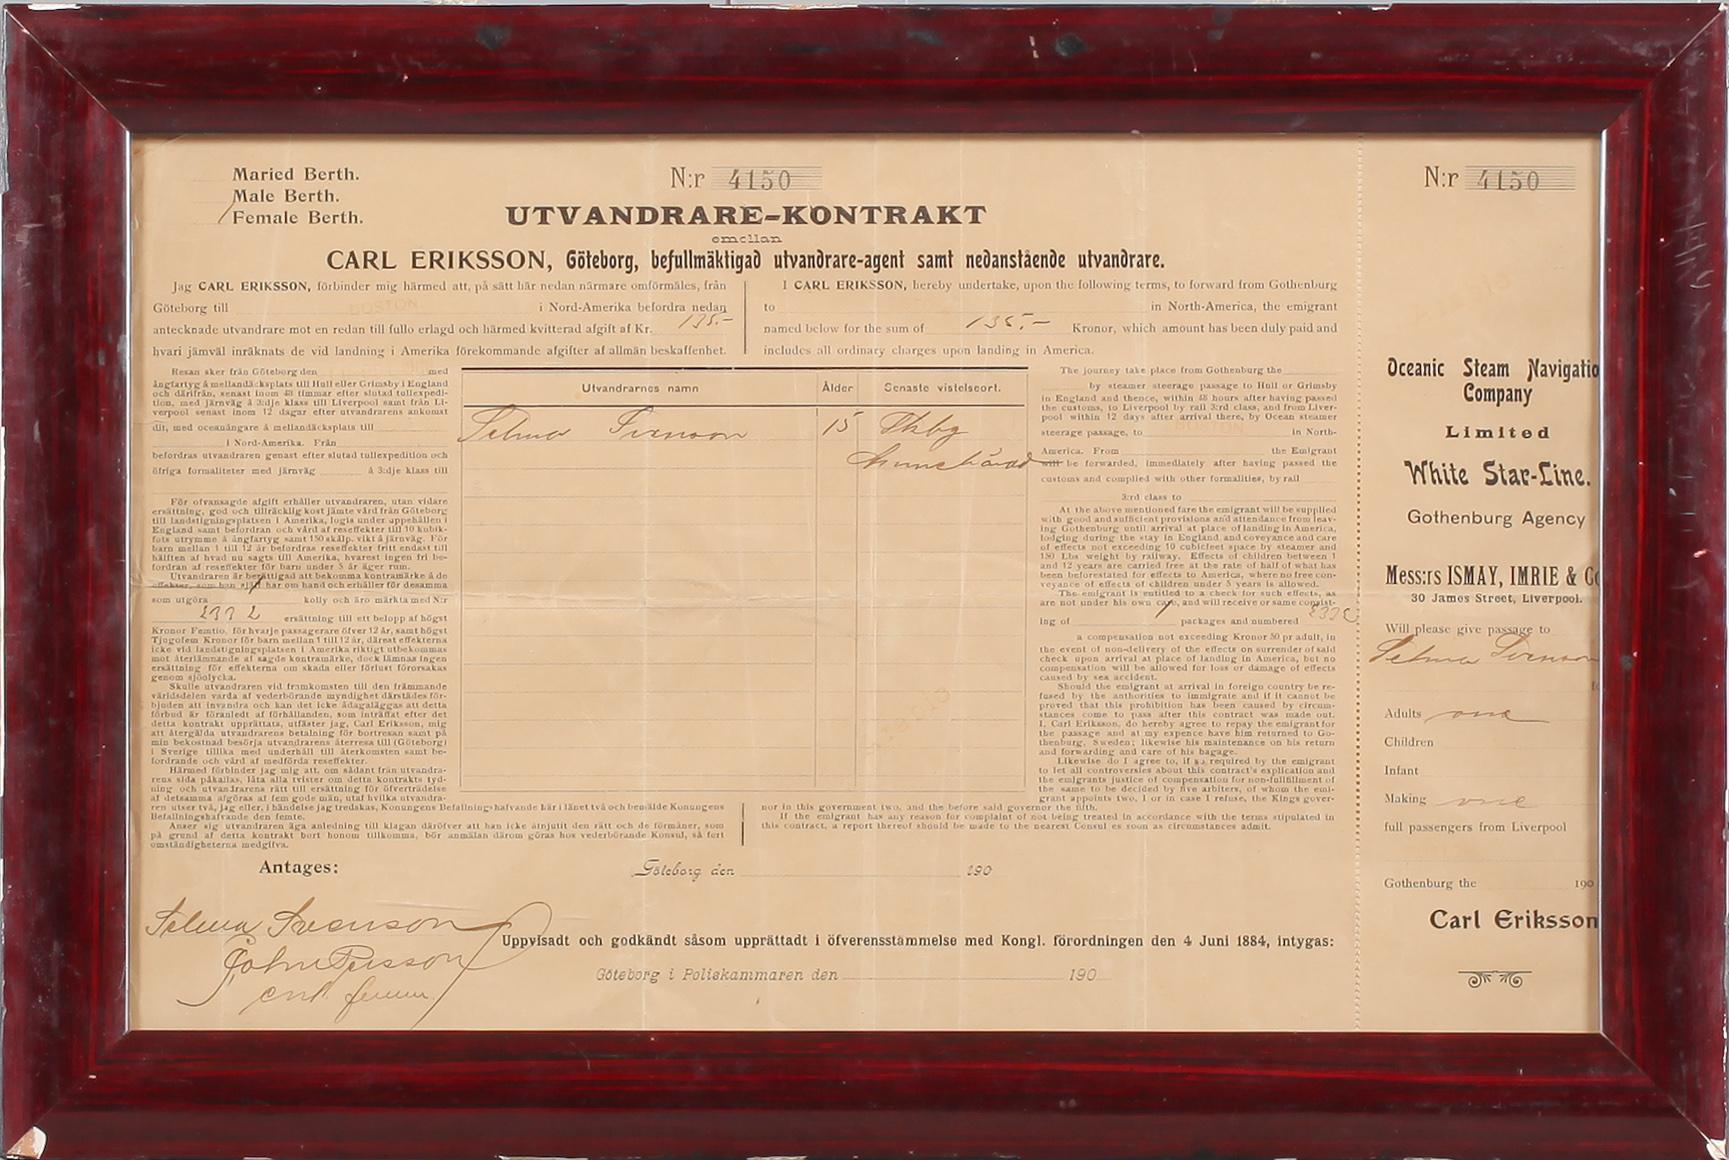 Maried Berth.
Male Berth.
Female Berth.
N:r 4150
UTVANDRARE-KONTRAKT
emellan
CARL ERIKSSON, Göteborg, befullmäktigad utvandrare-agent samt nedanstående utvandrare.
Jag CARL ERIKSSON, förbinder mig härmed att, på sätt här nedan närmare omförmäles, från
Göteborg till BOSTON i Nord-Amerika befordra nedan
antecknade utvandrare mot en redan till fullo erlagd och härmed kvitterad afgift af Kr. 135.-
hvari jämväl inräknats de vid landning i Amerika förekommande afgifter af allmän beskaffenhet.
I CARL ERIKSSON, hereby undertake, upon the following terms, to forward from Gothenburg
to in North-America, the emigrant
named below for the sum of 135.- Kronor, which amount has been duly paid and
includes all ordinary charges upon landing in America.
Resan sker från Göteborg den med
ångfartyg å mellandäcksplats till Hull eller Grimsby i England
och därifrån, senast inom 48 timmar efter slutad tullexpedi-
tion, med järnväg å 3:dje klass till Liverpool samt från Li-
verpool senast inom 12 dagar efter utvandrarens ankomst
dit, med oceanångare å mellandäcksplats till
i Nord-Amerika. Från
befordras utvandraren genast efter slutad tullexpedition och
öfriga formaliteter med järnväg å 3:dje klass till
För ofvansagde afgift erhåller utvandraren, utan vidare
ersättning, god och tillräcklig kost jämte vård från Göteborg
till landstigningsplatsen i Amerika, logis under uppehållen i
England samt befordran och vård af reseffekter till 10 kubik-
fots utrymme å ångfartyg samt 150 skålp. vikt å järnväg. För
barn mellan 1 till 12 år befordras reseffekter fritt endast till
hälften af hvad nu sagts till Amerika, hvarest ingen fri be-
fordran af reseffekter för barn under 5 år äger rum.
Utvandraren är berättigad att bekomma kontramärke å de
effekter, som han själf har om hand och erhåller för desamma
som utgöra 1 kolly och äro märkta med N:r
ersättning till ett belopp af högst
Kronor Femtio, för hvarje passagerare öfver 12 år, samt högst
Tjugofem Kronor för barn mellan 1 till 12 år, därest effekterna
icke vid landstigningsplatsen i Amerika riktigt utbekommas
mot återlämnande af sagde kontramärke, dock lämnas ingen
ersättning för effekterna om skada eller förlust förorsakas
genom sjöolycka.
Skulle utvandraren vid framkomsten till den främmande
världsdelen varda af vederbörande myndighet därstädes för-
bjuden att invandra och kan det icke ådagaläggas att detta
förbud är föranledt af förhållanden, som inträffat efter det
detta kontrakt upprättats, utfäster jag, Carl Eriksson, mig
att återgälda utvandrarens betalning för bortresan samt på
min bekostnad besörja utvandrarens återresa till (Göteborg)
i Sverige tillika med underhåll till återkomsten samt be-
fordrande och vård af medförda reseffekter.
Härmed förbinder jag mig att, om sådant från utvandra-
rens sida påkallas, låta alla tvister om detta kontrakts tyd-
ning och utvandrarens rätt till ersättning för öfverträdelse
af detsamma afgöras af fem gode män, utaf hvilka utvandra-
ren utser två, jag eller, i händelse jag tredskas, Konungens Befallningshafvande här i länet två och bemälde Konungens
Befallningshafvande den femte.
Anser sig utvandraren äga anledning till klagan däröfver att han icke åtnjutit den rätt och de förmåner, som
på grund af detta kontrakt bort honom tillkomma, bör anmälan därom göras hos vederbörande Konsul, så fort
omständigheterna medgifva.
Utvandrarnes namn Ålder Senaste vistelseort.
Selma Svenson 15
The journey take place from Gothenburg the
by steamer steerage passage to Hull or Grimsby
in England and thence, within 48 hours after having passed
the customs, to Liverpool by rail 3:rd class, and from Liver-
pool within 12 days after arrival there, by Ocean steamer
steerage passage, to BOSTON in North-
America. From the Emigrant
will be forwarded, immediately after having passed the
customs and complied with other formalities, by rail
3:rd class to
At the above mentioned fare the emigrant will be supplied
with good and sufficient provisions and attendance from leav-
ing Gothenburg until arrival at place of landing in America,
lodging during the stay in England, and coveyance and care
of effects not exceeding 10 cubicfeet space by steamer and
150 Lbs weight by railway. Effects of children between 1
and 12 years are carried free at the rate of half of what has
been beforestated for effects to America, where no free con-
veyance of effects of children under 5 years is allowed.
The emigrant is entitled to a check for such effects, as
are not under his own care, and will receive or same consist-
ing of 1 packages and numbered
a compensation not exceeding Kronor 50 pr adult, in
the event of non-delivery of the effects on surrender of said
check upon arrival at place of landing in America, but no
compensation will be allowed for loss or damage of effects
caused by sea accident.
Should the emigrant at arrival in foreign country be re-
fused by the authorities to immigrate and if it cannot be
proved that this prohibition has been caused by circum-
stances come to pass after this contract was made out.
I, Carl Eriksson, do hereby agree to repay the emigrant for
the passage and at my expence have him returned to Go-
thenburg, Sweden; likewise his maintenance on his return
and forwarding and care of his bagage.
Likewise do I agree to, if so required by the emigrant
to let all controversies about this contract's explication and
the emigrants justice of compensation for non-fullfillment of
the same to be decided by five arbiters, of whom the emi-
grant appoints two, I or in case I refuse, the Kings gover-
nor in this government two, and the before said governor the fifth.
If the emigrant has any reason for complaint of not being treated in accordance with the terms stipulated in
this contract, a report thereof should be made to the nearest Consul es soon as circumstances admit.
Antages:
Göteborg den 190
Selma Svenson
John Persson
Uppvisadt och godkändt såsom upprättadt i öfverensstämmelse med Kongl. förordningen den 4 Juni 1884, intygas:
Göteborg i Poliskammaren den 190
N:r 4150
Oceanic Steam Navigatio
Company
Limited
White Star-Line.
Gothenburg Agency
Mess:rs ISMAY, IMRIE & Co
30 James Street, Liverpool.
Will please give passage to
Selma Svenson
Adults one
Children
Infant
Making one
full passengers from Liverpool
Gothenburg the 190
Carl Eriksson